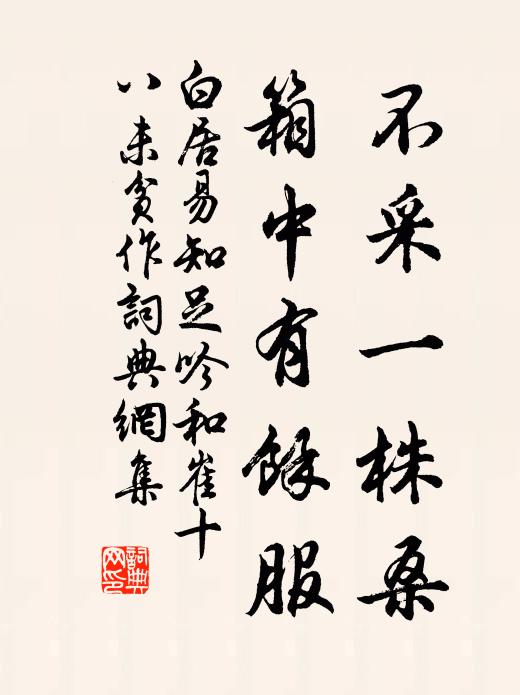 不采一株桑
箱中有餘服
白居易知足吟和崔十
八未貧作詞典網集
詞典网印